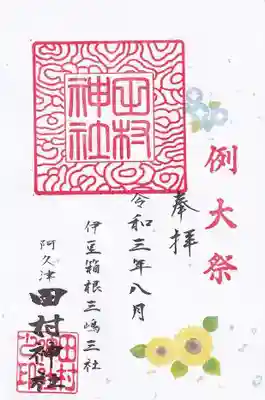 例大祭
奉拝
令和三年八月
伊豆箱根三嶋三社
阿久津
田村神社
田村
神社